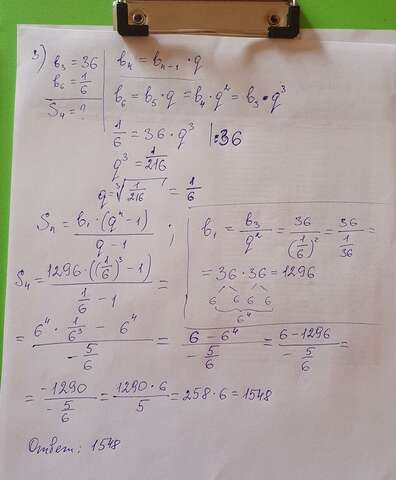 3) b₃ = 36
b₆ = 1/6
S₄ = ?
bₙ = bₙ₋₁ · q
b₆ = b₅ · q = b₄ · q² = b₃ · q³
1/6 = 36 · q³ |:36
q³ = 1/216
q = ∛(1/216) = 1/6
Sₙ = b₁ · (qⁿ - 1) / (q - 1) ;
b₁ = b₃/q² = 36/(1/6)² = 36/(1/36) =
= 36 · 36 = 1296
6 6 6 6
6⁴
S₄ = 1296 · ((1/6)³ - 1) / (1/6 - 1) =
= (6⁴ · 1/6³ - 6⁴) / (-5/6) = (6 - 6⁴) / (-5/6) = (6 - 1296) / (-5/6) =
= -1290 / (-5/6) = 1290 · 6 / 5 = 258 · 6 = 1548
Ответ: 1548